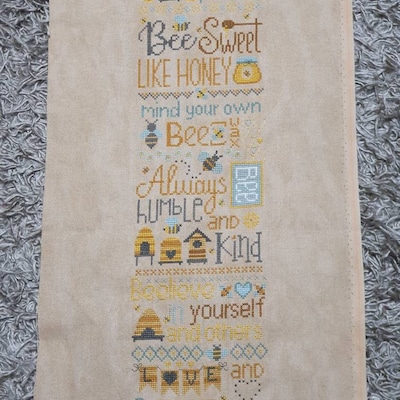 Bee Sweet
LIKE HONEY
mind your own
Bee wax
Always
BEE
humble and
Kind
Beelieve
in yourself
and others
LOVE and